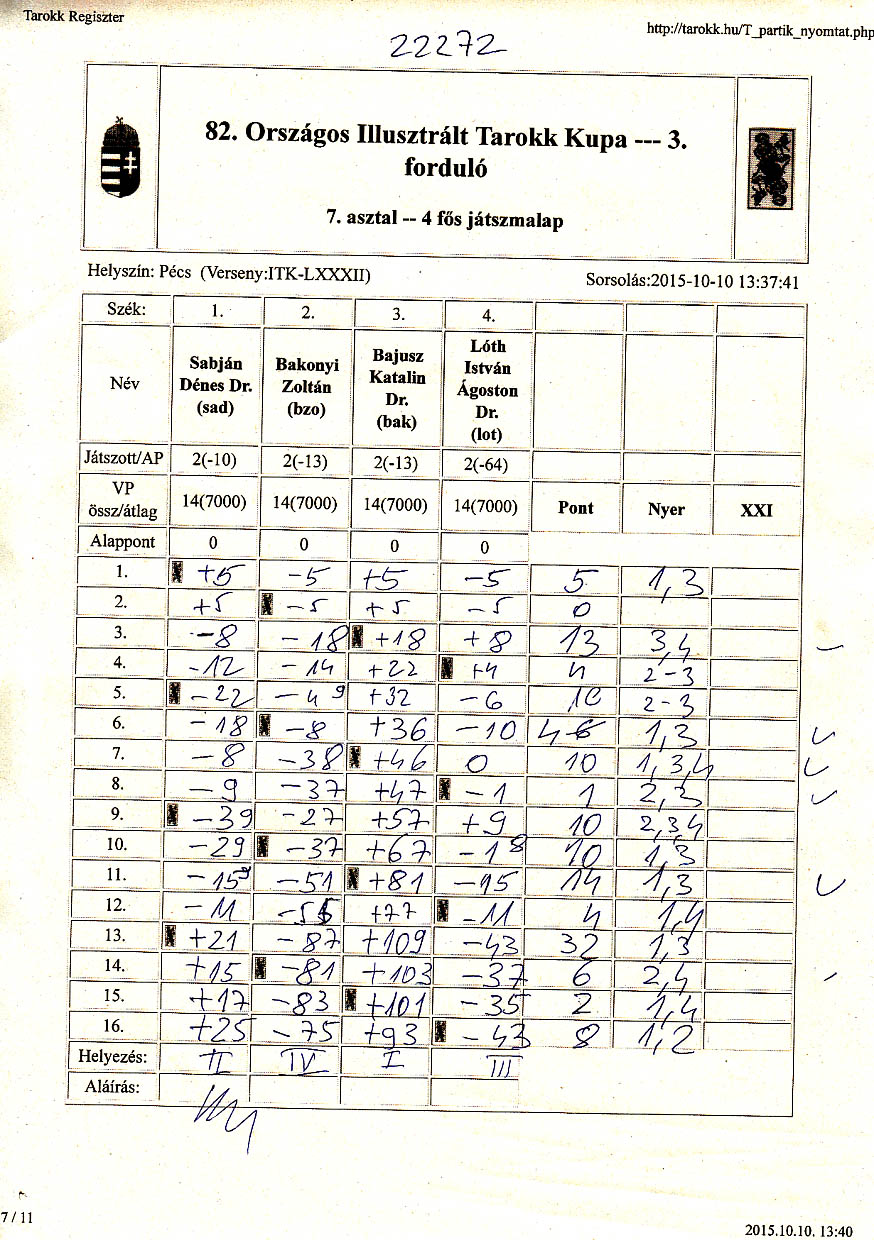 Tarokk Regiszter
http://tarokk.hu/T_partik_nyomtat.php
22272
82. Országos Illusztrált Tarokk Kupa --- 3.
forduló
7. asztal -- 4 fős játszmalap
Helyszín: Pécs (Verseny:ITK-LXXXII)
Sorsolás:2015-10-10 13:37:41
Szék: 1. 2. 3. 4.
Név Sabján Dénes Dr. (sad) Bakonyi Zoltán (bzo) Bajusz Katalin Dr. (bak) Lóth István Ágoston Dr. (lot)
Játszott/AP 2(-10) 2(-13) 2(-13) 2(-64)
VP össz/átlag 14(7000) 14(7000) 14(7000) 14(7000) Pont Nyer XXI
Alappont 0 0 0 0
1. +5 -5 +5 -5 5 1,3
2. +5 -5 +5 -5 0
3. -8 -18 +18 +8 13 3,4
4. -12 -14 +22 +4 4 2-3
5. -22 -4 +32 -6 10 2-3
6. -18 -8 +36 -10 4 1,3
7. -8 -38 +46 0 10 1,3,4
8. -9 -37 +47 -1 1 2,3
9. -39 -27 +57 +9 10 2,3,4
10. -29 -37 +67 -1 10 1,3
11. -15 -51 +81 -15 14 1,3
12. -11 -55 +77 -11 4 1,4
13. +21 -87 +109 -43 32 1,3
14. +15 -81 +103 -37 6 2,4
15. +17 -83 +101 -35 2 1,4
16. +25 -75 +93 -43 8 1,2
Helyezés: II IV I III
Aláírás:
7 / 11
2015.10.10. 13:40